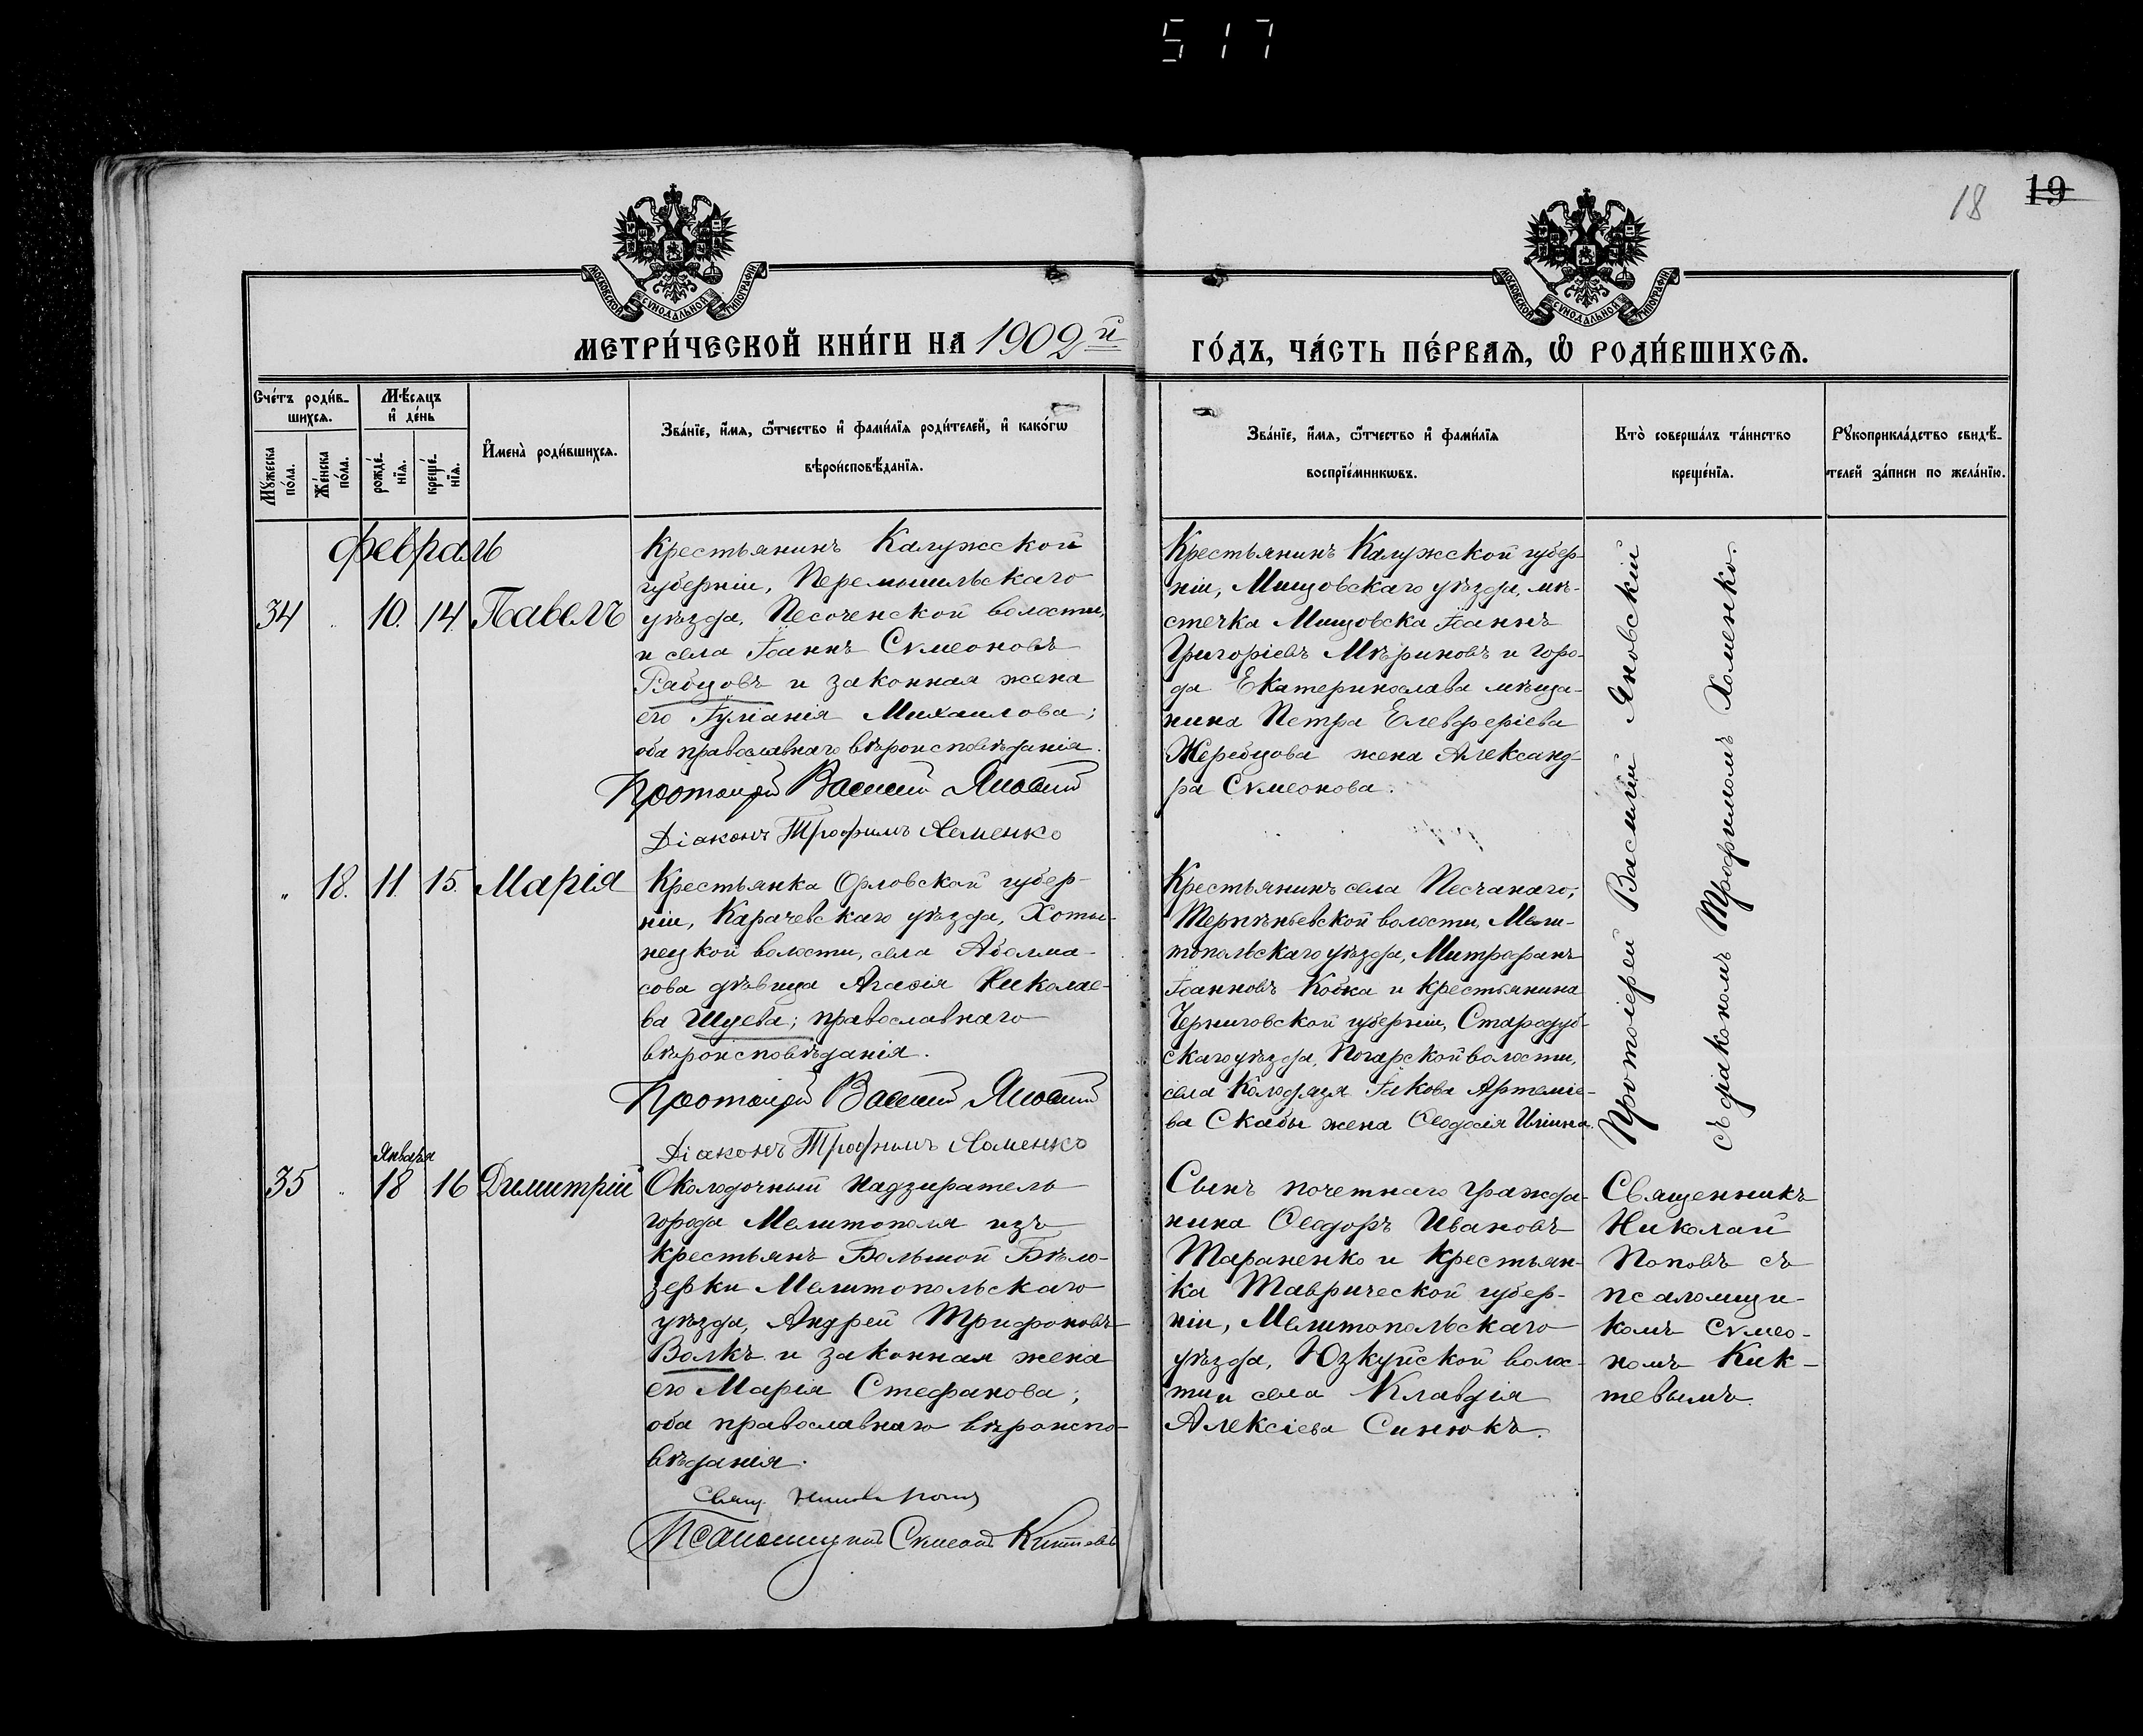 517
18 19
МОСКОВСКОЙ СУНОДАЛЬНОЙ ТИПОГРАФІИ
МОСКОВСКОЙ СУНОДАЛЬНОЙ ТИПОГРАФІИ
МЕТРИ́ЧЕСКОЙ КНИ́ГИ НА 1909й ГО́ДЪ, ЧА́СТЬ ПЕ́РВАѦ, Ѡ҆ РОДИ́ВШИХСѦ.
Сче́тъ роди́в-
шихсѧ.
Му́жеска
по́ла.
Же́нска
по́ла.
Мѣ́сѧцъ
и҆ де́нь
рожде́-
нїѧ.
креще́-
нїѧ.
И҆мена̀ роди́вшихсѧ.
Зва́нїе, и҆́мѧ, ѻ҆́тчество и҆ фами́лїѧ роди́телей, и҆ како́гѡ
вѣроисповѣ́данїѧ.
Зва́нїе, и҆́мѧ, ѻ҆́тчество и҆ фами́лїѧ
воспрїе́мникѡвъ.
Кто̀ соверша́лъ та́инство
креще́нїѧ.
Рꙋкоприкла́дство свидѣ́-
телей за́писи по жела́нїю.
Февраль
34 10. 14. Павелъ
Крестьянинъ Калужской
губерніи, Перемышльскаго
уѣзда, Песоченской волости,
и села Іоаннъ Сѵмеоновъ
Рябцовъ и законная жена
его Іуліанія Михаилова;
оба православнаго вѣроисповѣданія.
Протоіерей Василій Яновскій
Діаконъ Трофимъ Хоменко
Крестьянинъ Калужской губер-
ніи, Мещовскаго уѣзда, мѣ-
стечка Мещовска Іоаннъ
Григоріевъ Мѣриновъ и горо-
да Екатеринослава мѣща-
нина Петра Елевферіева
Жеребцова жена Александ-
ра Сѵмеонова.
Протоіерей Василій Яновскій
съ діакономъ Трофимомъ Хоменко.
" 18. 11. 15. Марія
Крестьянка Орловской губер-
ніи, Карачевскаго уѣзда, Хоты-
нецкой волости, села Аболма-
сова дѣвица Агаѳія Николае-
ва Шуева; православнаго
вѣроисповѣданія.
Протоіерей Василій Яновскій
Діаконъ Трофимъ Хоменко
Крестьянинъ села Песчанаго,
Терпѣньевской волости, Мели-
топольскаго уѣзда, Митрофанъ
Іоанновъ Кобка и крестьянина
Черниговской губерніи, Стародуб-
скаго уѣзда, Погарской волости,
села Колодязя Іакова Артеміе-
ва Скабы жена Ѳеодосія Ильина.
Января
35 " 18 16 Димитрій
Околодочный надзиратель
города Мелитополя изъ
крестьянъ Большой Бѣло-
зерки Мелитопольскаго
уѣзда, Андрей Трифоновъ
Волкъ и законная жена
его Марія Стефанова;
оба православнаго вѣроиспо-
вѣданія.
Свящ. Николай Поповъ
Псаломщикъ Сѵмеонъ Киктевъ
Сынъ почетнаго гражда-
нина Ѳеодоръ Ивановъ
Тараненко и крестьян-
ка Таврической губер-
ніи, Мелитопольскаго
уѣзда, Юзкуйской волос-
ти и села Клавдія
Алексіева Синюкъ.
Священникъ
Николай
Поповъ съ
псаломщи-
комъ Сѵмео-
номъ Кик-
тевымъ.